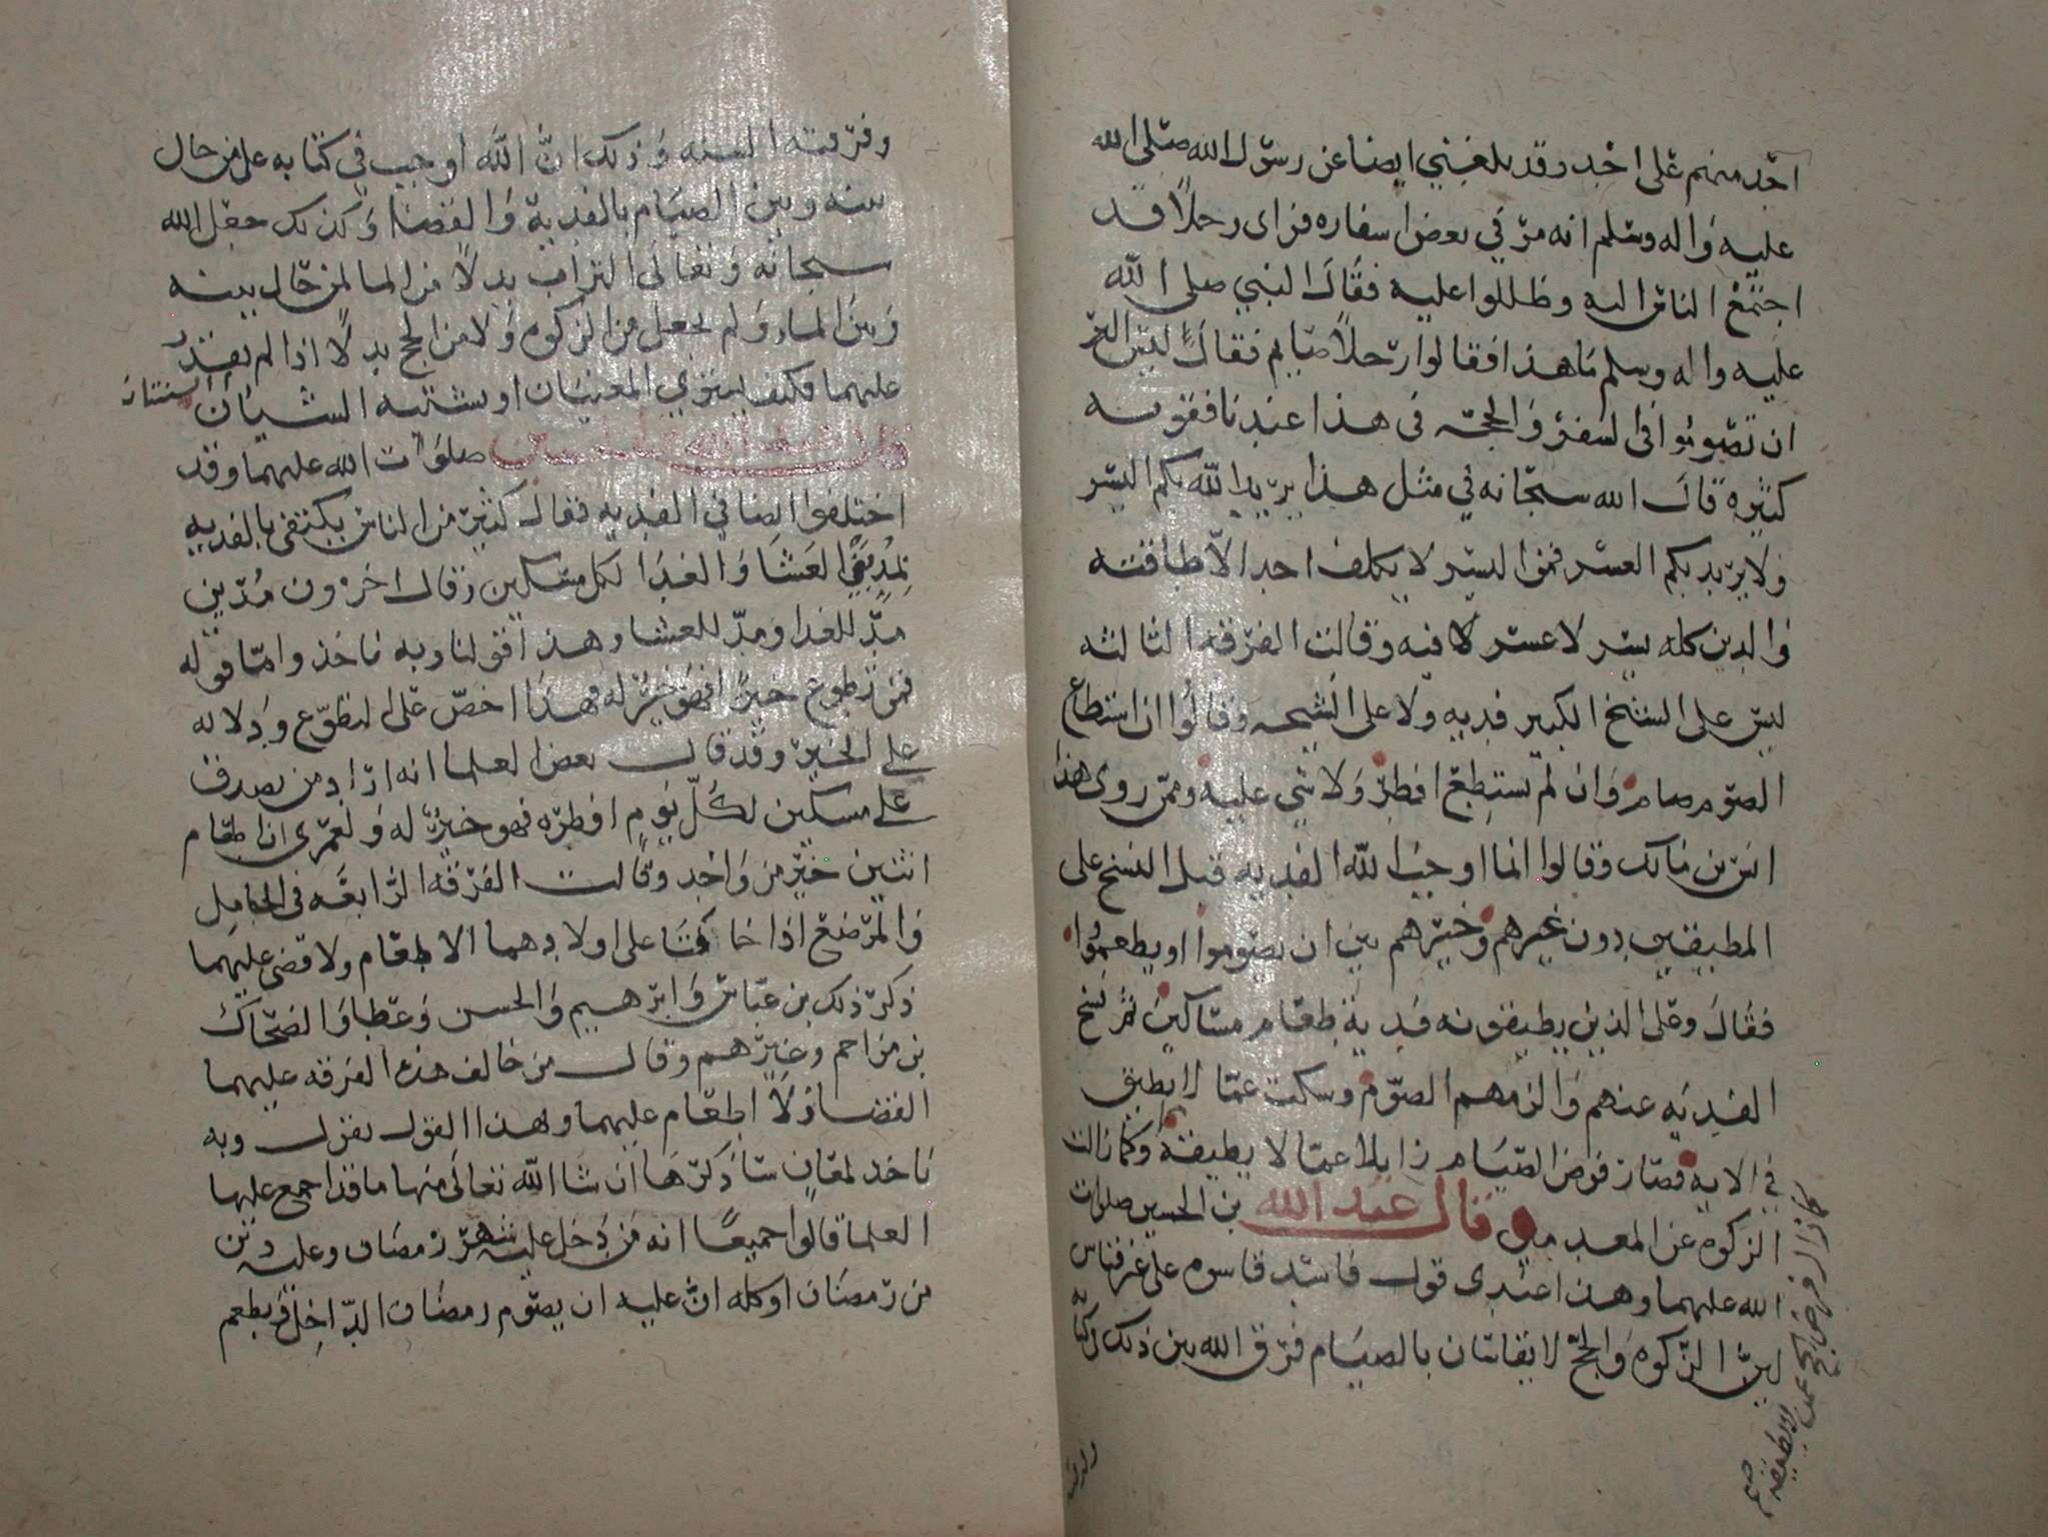 احد منهم على احد وقد بلغني ايضا عن رسول الله صلى الله
عليه واله وسلم انه مر في بعض اسفاره فراى رجلا قد
اجتمع الناس اليه وظللوا عليه فقال النبي صلى الله
عليه واله وسلم ما هذا فقالوا رجلا صايم فقال ليس البر
ان تصوموا في السفر والحجه في هذا عندنا فقويه
كثيره قال الله سبحانه في مثل هذا يريد الله بكم اليسر
ولا يريد بكم العسر فمن اليسر لا يكلف احدا الا طاقته
والدين كله يسر لا عسر فيه وقالت الفرقه الثالثه
ليس على الشيخ الكبير فديه ولا على الشيخه وقالوا ان استطاع
الصوم صام وان لم يستطع افطر ولا شي عليه وممن روى هذا
انس بن مالك وقالوا انما اوجب الله الفديه قبل النسخ على
المطيقين دون غيرهم وخيرهم بين ان يصوموا او يطعموا
فقال وعلى الذين يطيقونه فدية طعام مساكين ثم نسخ
الفديه عنهم والزمهم الصوم وسكت عما لا يطيق
في الايه فصار فرض الصيام زايلا عما لا يطيقه وكما زالت
الزكوه عن المعدمين وقال عبد الله بن الحسين صلوات
الله عليهما وهذا عندي قول فاسد قاسوه على غير قياس
لان الزكوه والحج لا يقاسان بالصيام فرق الله بين ذلك
كما زال فرض الحج عمن لا يطيقه صح
وفرقته السنه وذلك ان الله اوجب في كتابه على من حال
بينه وبين الصيام بالفدية والقضا وكذلك جعل الله
سبحانه وتعالى التراب بدلا من الما لمن حال بينه
وبين الماء ولم يجعل من الزكوه ولا من الحج بدلا اذا لم يقدر
عليهما فكيف يستوي المعنيان او يشتبه الشيان
قال عبد الله بن الحسين صلوات الله عليهما وقد
اختلفوا ايضا في الفديه فقال كثير من الناس يكتفى بالفديه
العشا والغدا لكل مسكين وقال اخرون مدين
مد للغدا ومد للعشا وهذا قولنا وبه ناخذ واما قوله
فمن تطوع خيرا فهو خير له فهذا خص على التطوع ودلاله
على الخير وقد قال بعض العلما انه اراد من تصدق
على مسكين لكل يوم افطره فهو خير له ولعمرى ان اطعام
اثنين خير من واحد وقالت الفرقه الرابعه في الحامل
والمرضع اذا خافتا على اولادهما الاطعام ولا قضى عليهما
ذكر ذلك بن عباس وابرهيم والحسن وعطا والضحاك
بن مزاحم وغيرهم وقال من خالف هذه الفرقه عليهما
القضا ولا اطعام عليهما وهذا القول نقول وبه
ناخذ لمعان ساذكرها ان شا الله تعالى منها ما قد اجمع عليها
العلما قالوا جميعا انه من دخل عليه شهر رمضان وعليه دين
من رمضان او كله ان عليه ان يصوم رمضان الداخل ويطعم